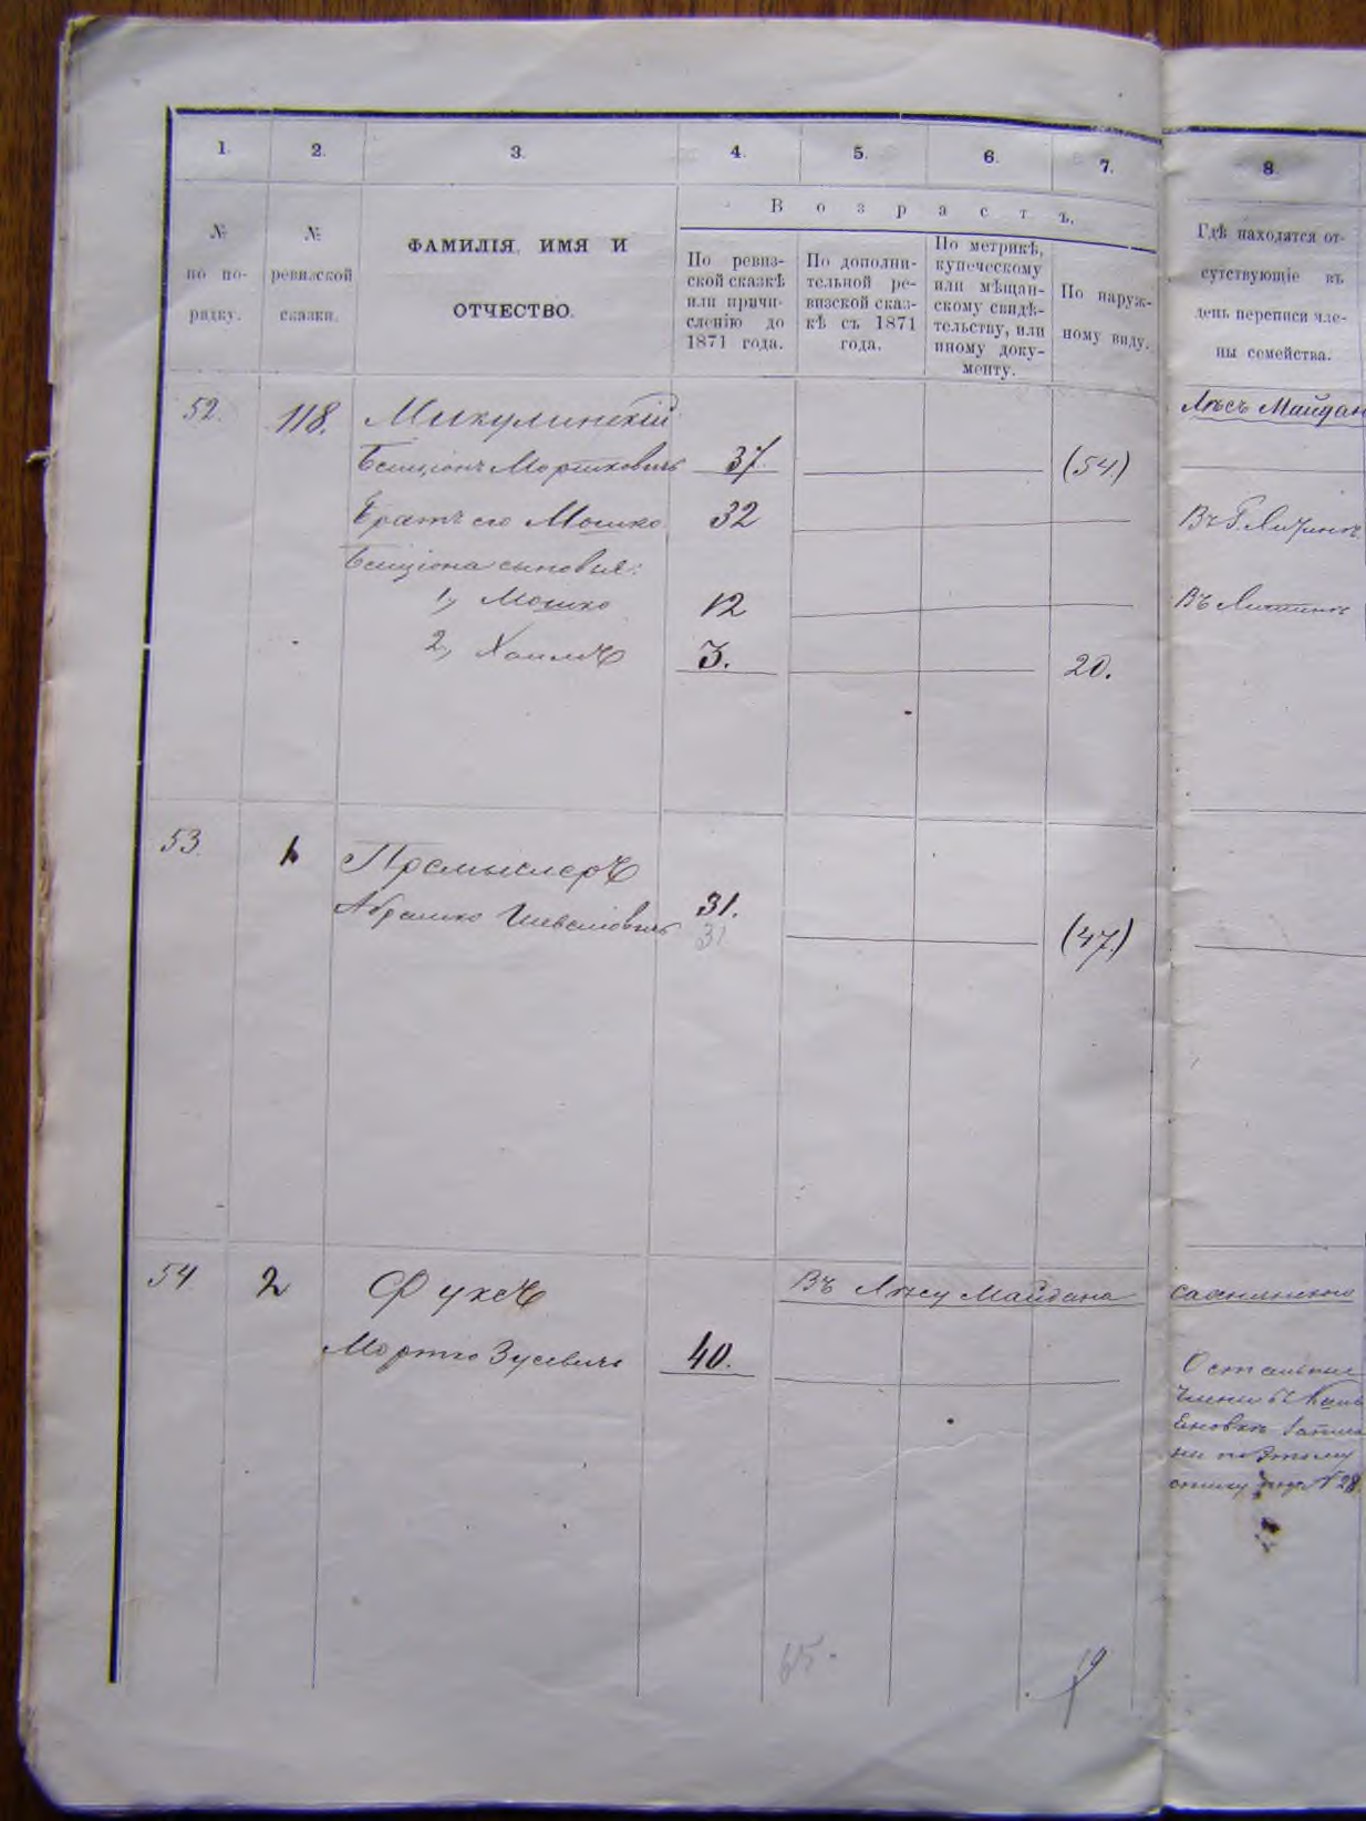 1. 2. 3. 4. 5. 6. 7. 8.
№ по по-рядку.
№ ревизской сказки.
ФАМИЛІЯ, ИМЯ И
ОТЧЕСТВО.
Возрастъ.
По ревиз-
ской сказкѣ
или причи-
сленію до
1871 года.
По дополни-
тельной ре-
визской сказ-
кѣ съ 1871
года.
По метрикѣ,
купеческому
или мѣщан-
скому свидѣ-
тельству, или
иному доку-
менту.
По наруж-
ному виду.
Гдѣ находятся от-
сутствующіе въ
день переписи чле-
ны семейства.
52. 118. Микулинскій Лѣсъ Майдан
Бенціонъ Мортковичъ 37. (54.)
Братъ его Мошко 32
Бенціона сыновья:
1, Мошко 12 Въ Литинѣ
2, Хаимъ 3. 20.
53. 1. Премыслеръ
Абрамко 31.
31
(47.)
54 2 Фуксъ Въ Лѣсу Майдана
Мортко Зусевичъ 40.
Остальные
члены въ
по этому
списку подъ № 28.
65.